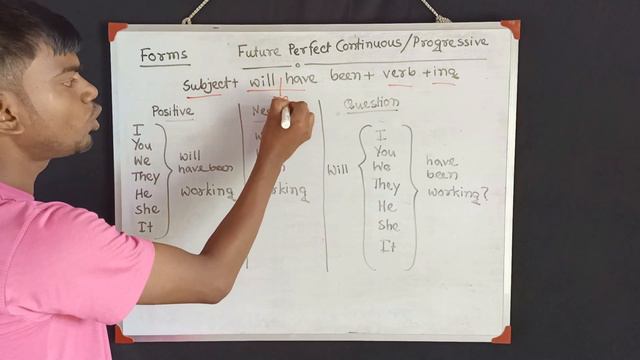 Forms
Future Perfect Continuous/Progressive
Subject + will have been + verb + ing
Positive
I
You
We
They
He
She
It
will
have been
working
Question
Will
I
You
We
They
He
She
It
have
been
working?